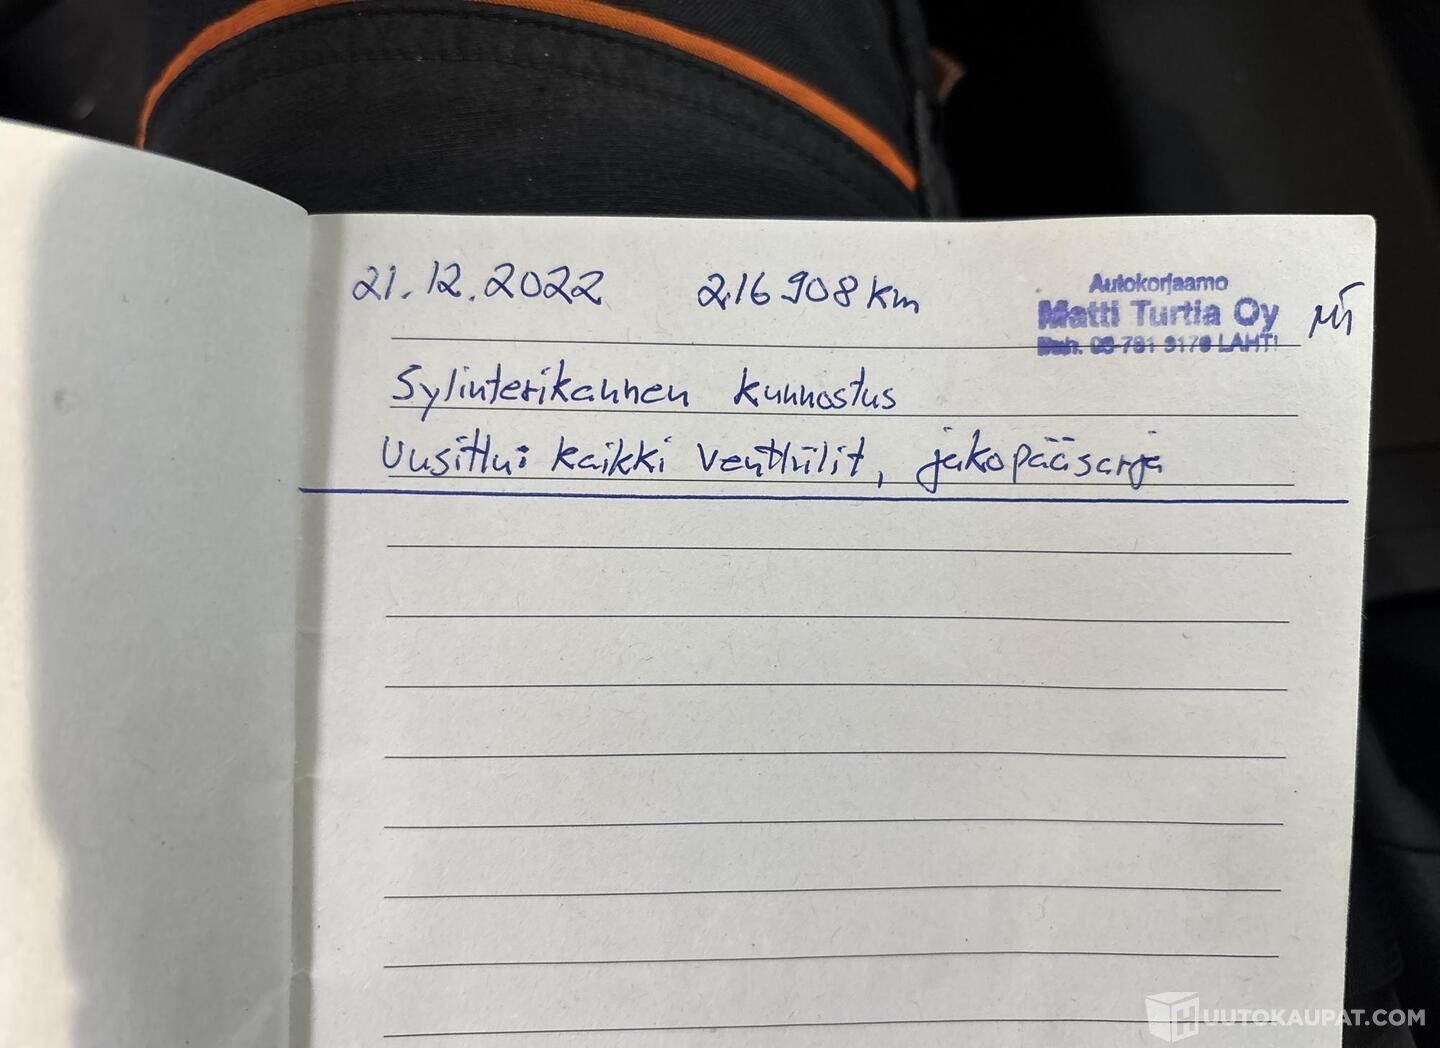 21.12.2022 216 908 km
Autokorjaamo
Matti Turtia Oy
Puh. 03-781 3178 LAHTI
MT
Sylinterikannen kunnostus
Uusittui kaikki venttiilit, jakopääsarja
HUUTOKAUPAT.COM